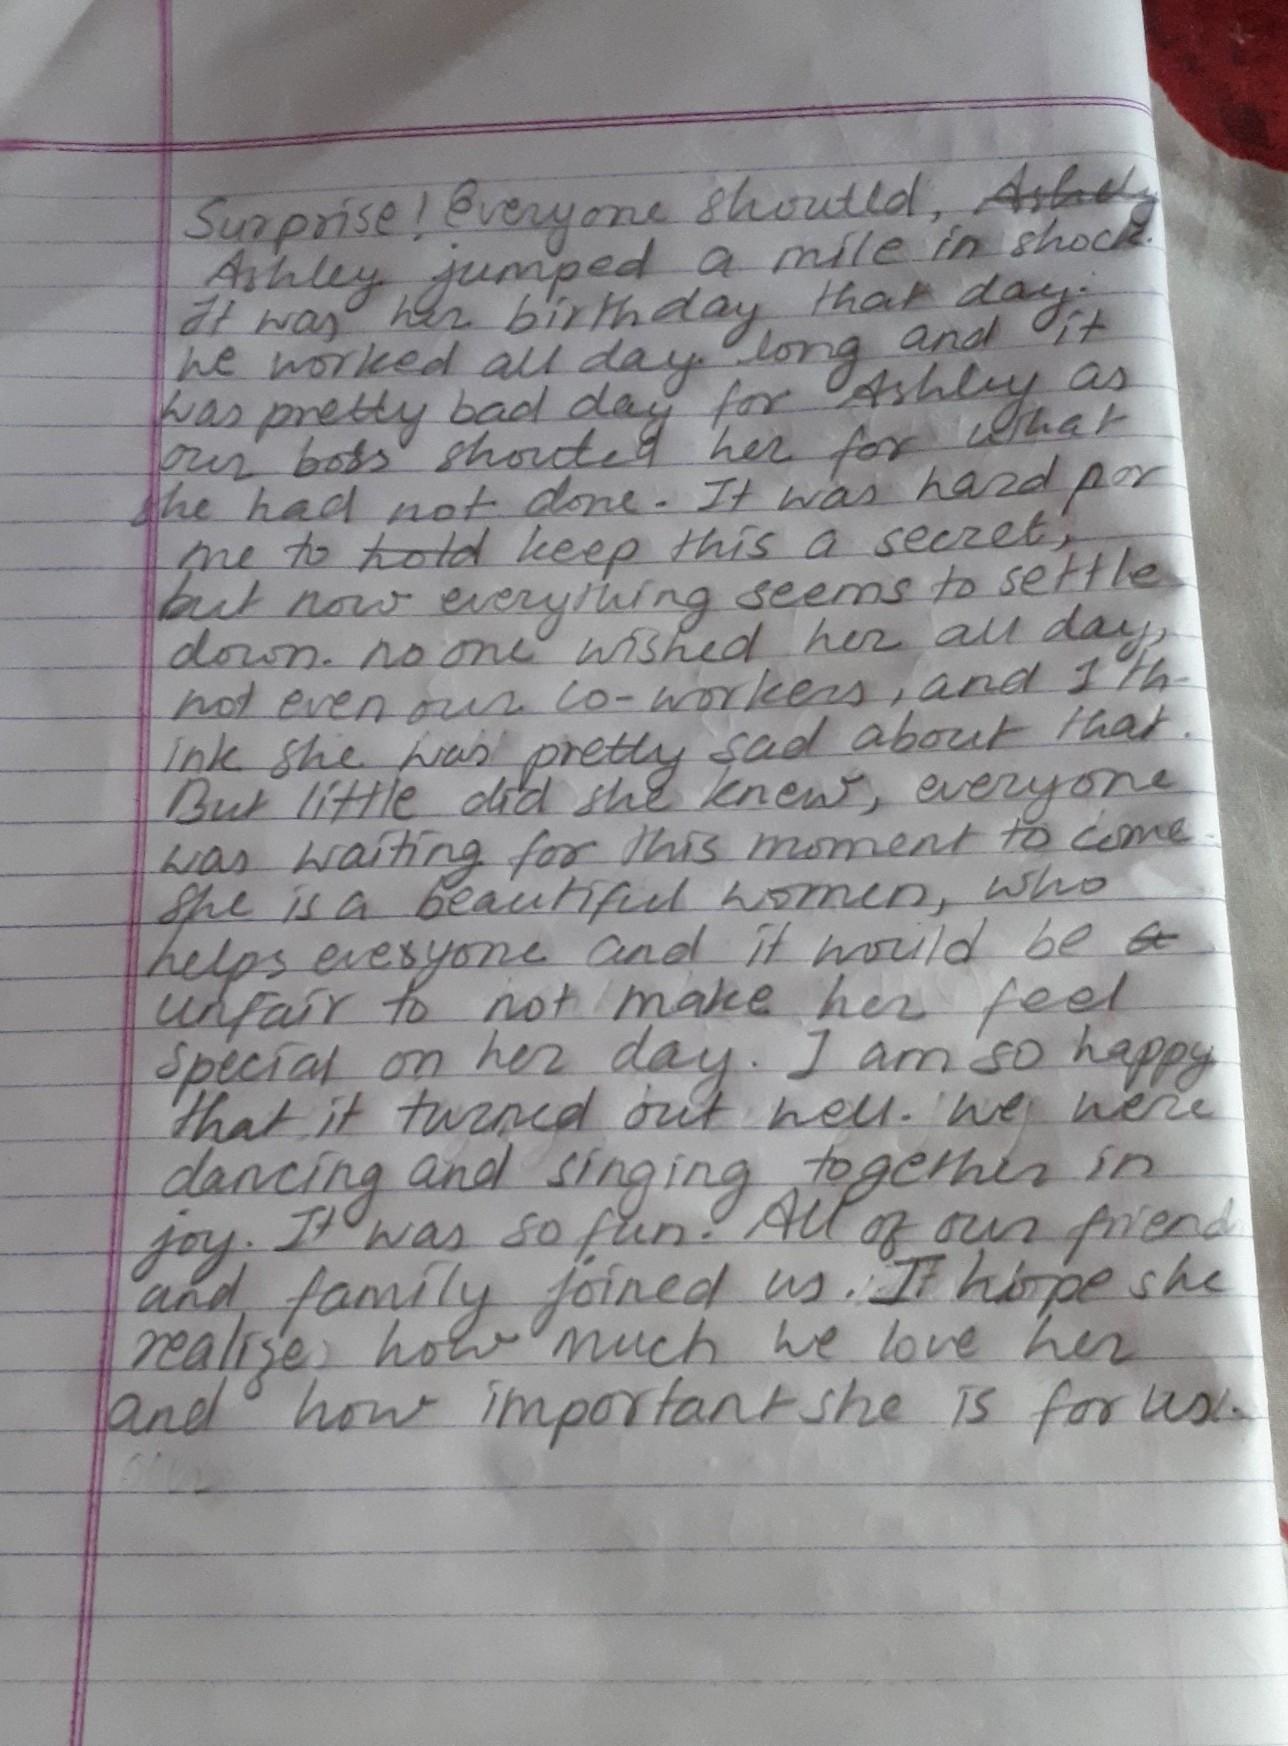 Surprise! Everyone shouted, Ashely
Ashley jumped a mile in shock.
It was her birthday that day.
we worked all day long and it
was pretty bad day for Ashley as
our boss shouted her for what
she had not done. It was hard for
me to hold keep this a secret,
but now everything seems to settle
down. no one wished her all day,
not even our co-workers, and I th-
ink she was pretty sad about that.
But little did she knew, everyone
was waiting for this moment to come.
She is a beautiful women, who
helps everyone and it would be a
unfair to not make her feel
special on her day. I am so happy
that it turned out well. we were
dancing and singing together in
joy. It was so fun. All of our friend
and family joined us. I hope she
realize how much we love her
and how important she is for us.